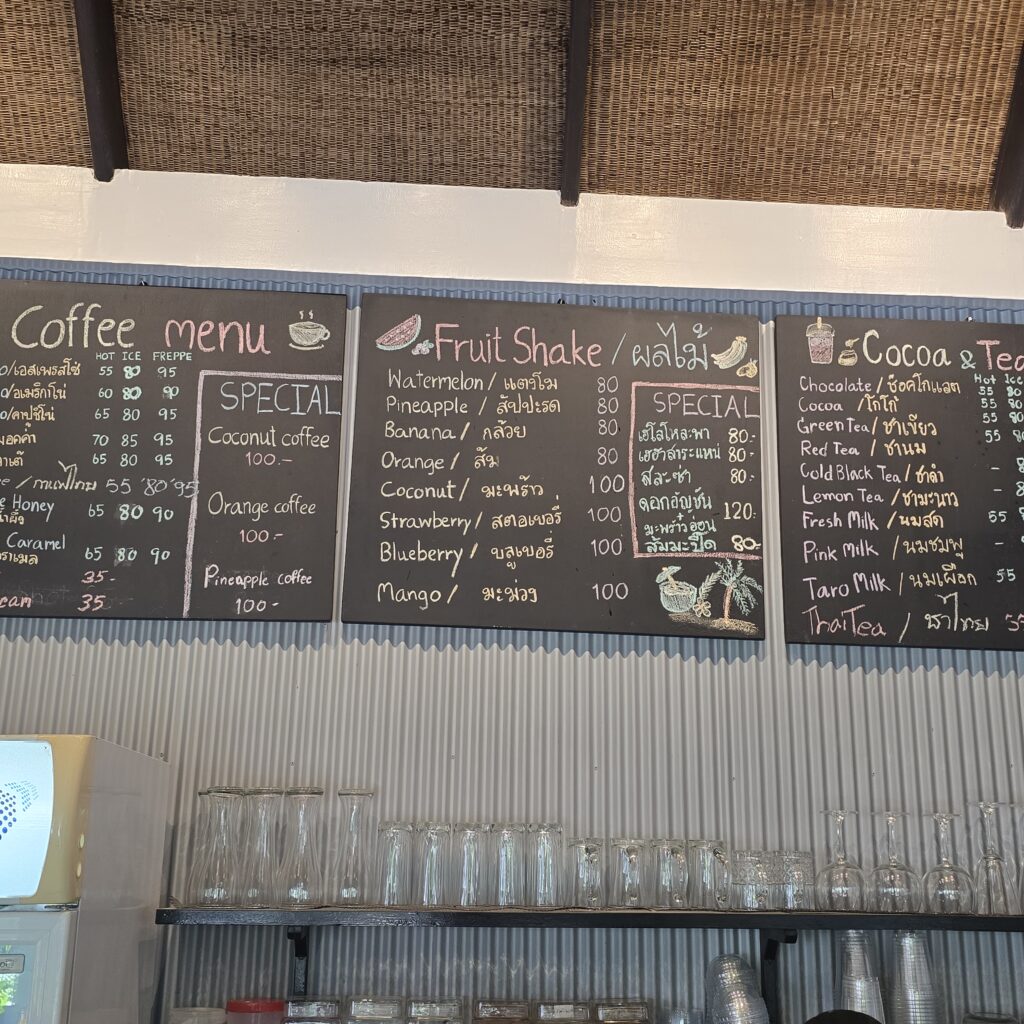 Coffee menu
HOT ICE FREPPE
/เอสเพรสโซ่ 55 80 95
/อเมริกาโน่ 60 80 95
/คาปูชิโน่ 65 80 95
70 85 95
65 80 95
/กาแฟไทย 55 80 95
Honey 65 80 90
Caramel
65 80 90
35.-
35
SPECIAL
Coconut coffee
100.-
Orange coffee
100.-
Pineapple coffee
100.-
Fruit Shake / ผลไม้
Watermelon / แตงโม 80
Pineapple / สัปปะรด 80
Banana / กล้วย 80
Orange / ส้ม 80
Coconut / มะพร้าว 100
Strawberry / สตอเบอรี่ 100
Blueberry / บลูเบอรี่ 100
Mango / มะม่วง 100
SPECIAL
เฮโลโหละพา 80.-
เฮฮาสาระแหน่ 80.-
สละซ่า 80.-
ดอกอัญชัน
มะพร้าวอ่อน 120.-
ส้มมะปี๊ด 80.-
Cocoa & Tea
Hot Ice
Chocolate / ช็อคโกแลต 55 80
Cocoa / โกโก้ 55 80
Green Tea / ชาเขียว 55 80
Red Tea / ชานม
Cold Black Tea / ชาดำ -
Lemon Tea / ชามะนาว -
Fresh Milk / นมสด 55
Pink Milk / นมชมพู -
Taro Milk / นมเผือก 55
Thai Tea / ชาไทย